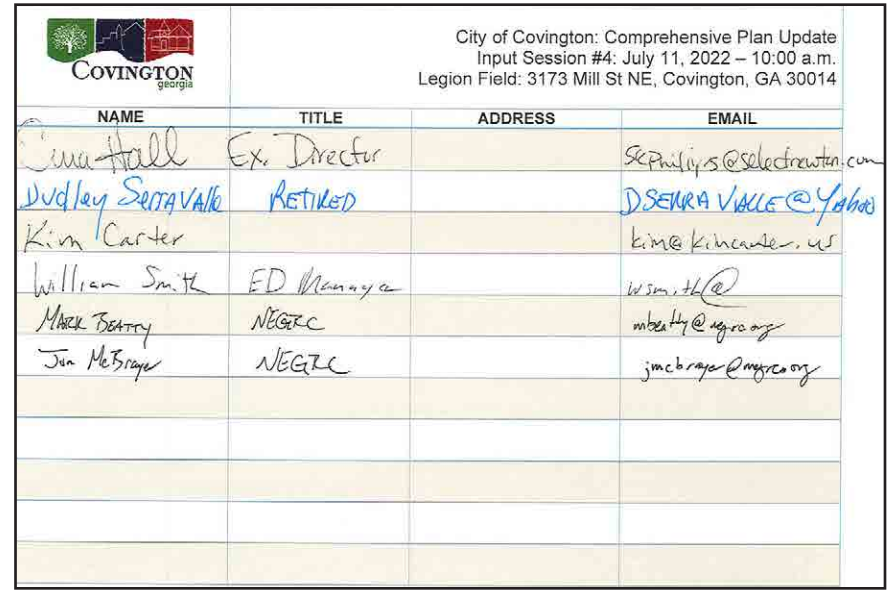 COVINGTON
georgia
City of Covington: Comprehensive Plan Update
Input Session #4: July 11, 2022 – 10:00 a.m.
Legion Field: 3173 Mill St NE, Covington, GA 30014
NAME TITLE ADDRESS EMAIL
Hall Ex. Director
Dudley Serravalle RETIRED DSERRAVALLE@Yahoo
Kim Carter kim@kimcarter.us
William Smith ED Manager wsmith@
MARK BEATTY NEGRC mbeatty@negrc.org
Jon McBrayer NEGRC jmcbrayer@negrc.org